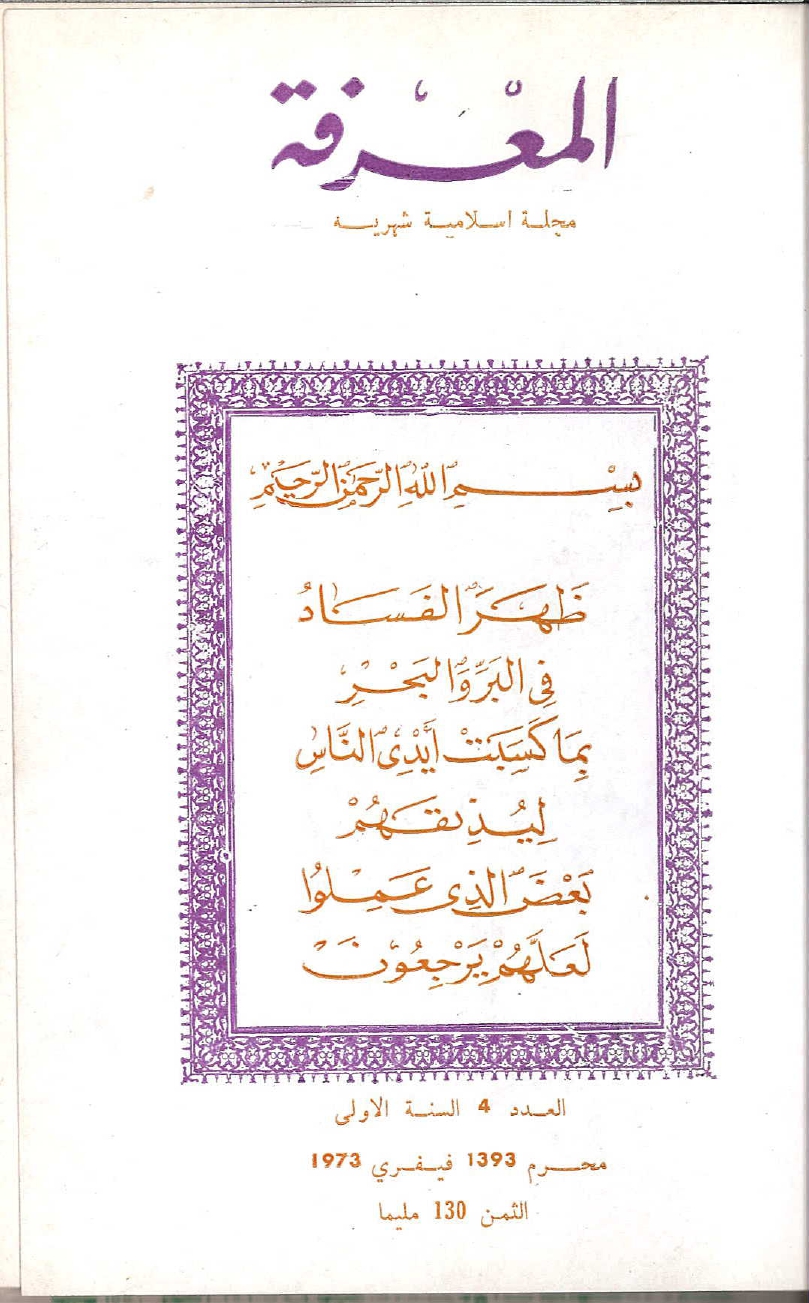 المعرفة
مجلة اسلامية شهريه
بِسْمِ اللهِ الرَّحْمَنِ الرَّحِيمِ
ظَهَرَ الفَسَادُ
فِى البَرِّ وَالبَحْرِ
بِمَا كَسَبَتْ أَيْدِى النَّاسِ
لِيُذِيقَهُمْ
بَعْضَ الذِى عَمِلُوا
لَعَلَّهُمْ يَرْجِعُونَ
العدد 4 السنة الاولى
محرم 1393 فيفري 1973
الثمن 130 مليما